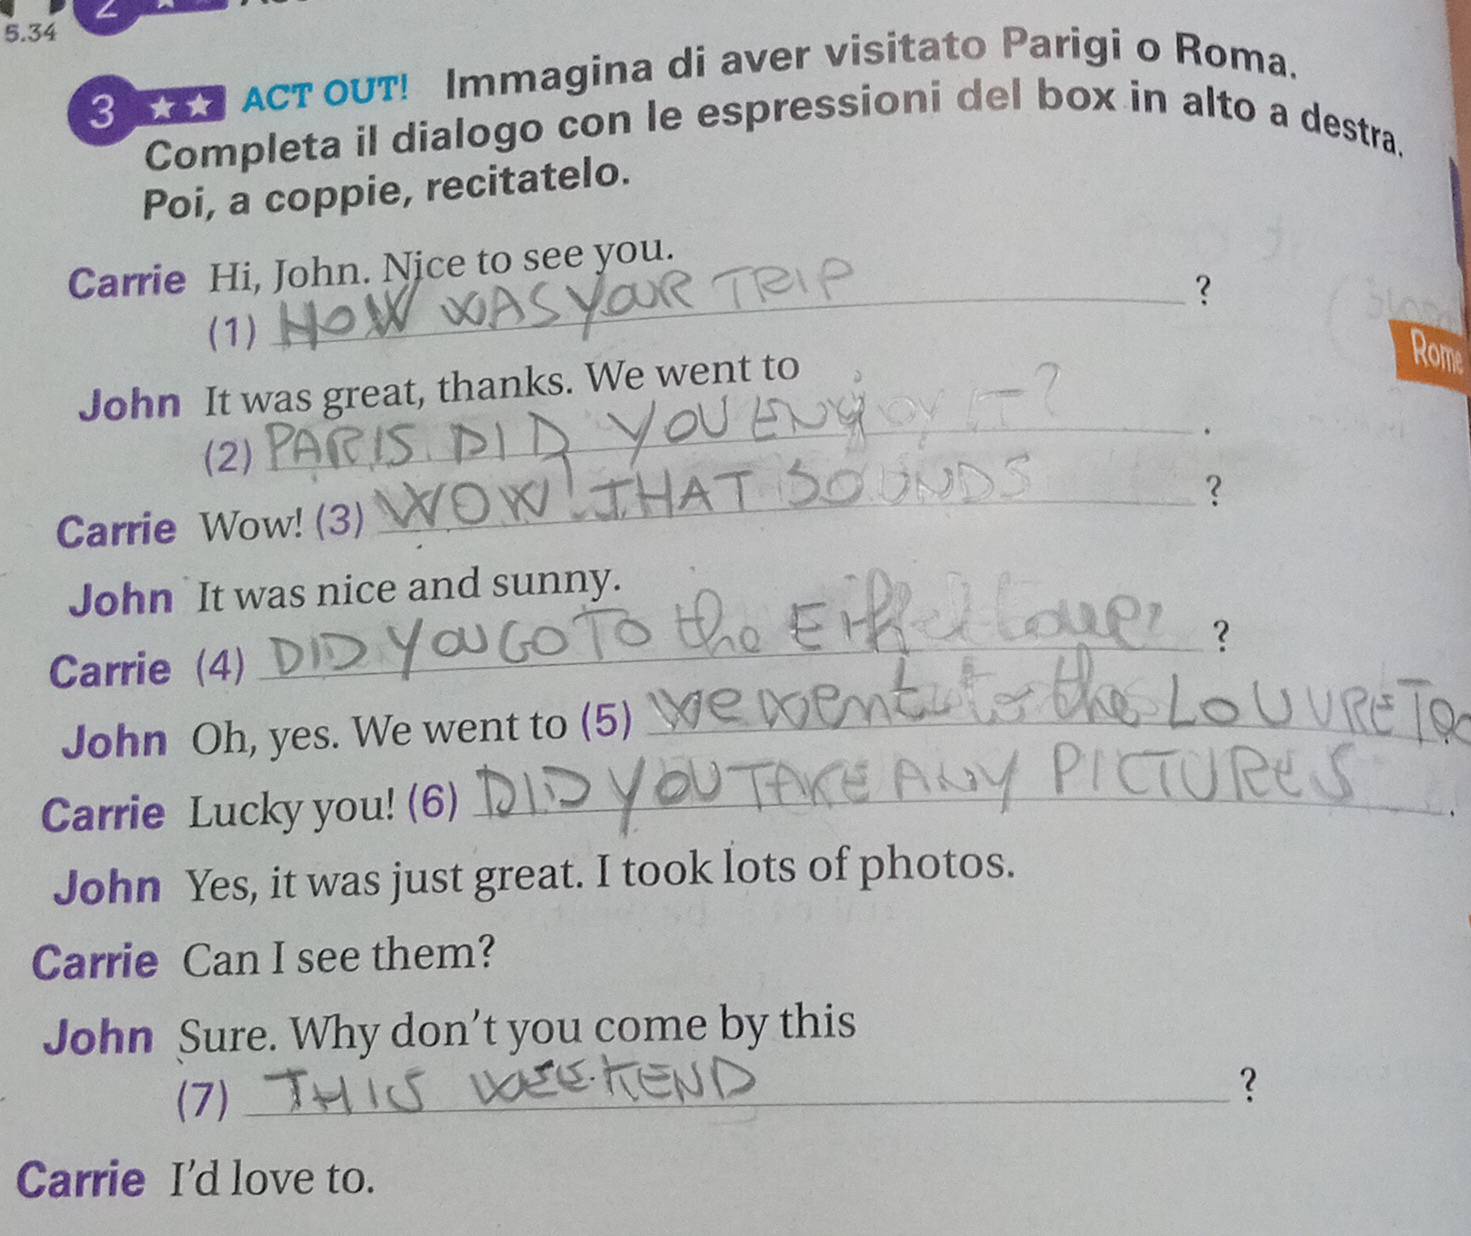 5.34
3 ★★ ACT OUT! Immagina di aver visitato Parigi o Roma.
Completa il dialogo con le espressioni del box in alto a destra.
Poi, a coppie, recitatelo.
Carrie Hi, John. Nice to see you.
(1) HOW WAS YOUR TRIP ?
Rome
John It was great, thanks. We went to
(2) PARIS DID YOU ENJOY IT? .
Carrie Wow! (3) WOW! THAT SOUNDS ?
John It was nice and sunny.
Carrie (4) DID YOU GO TO the Eiffel tower ?
John Oh, yes. We went to (5) we went to the LOUVRE TOO
Carrie Lucky you! (6) DID YOU TAKE ANY PICTURES .
John Yes, it was just great. I took lots of photos.
Carrie Can I see them?
John Sure. Why don't you come by this
(7) THIS WEEKEND ?
Carrie I'd love to.